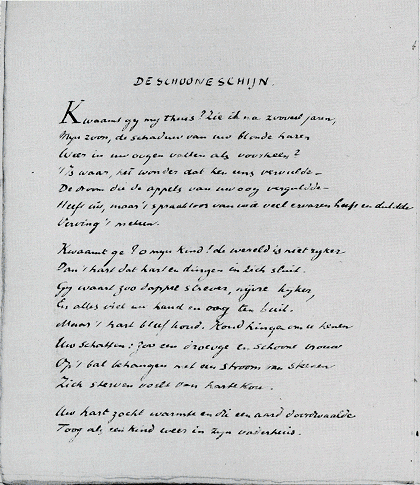 DE SCHOONE SCHIJN.
Kwaamt gy my thuis? Zie ik na zooveel jaren,
Myn zoon, de schaduw van uw blonde haren
Weer in uw oogen vallen als voorheen?
't Is waar, het wonder dat hen eens vervulde –
De droom die de appels van uw oog verguldde –
Heeft uit, maar 't spraakloos van wie veel ervaren heeft en duldde
Verving 't meteen.
Kwaamt ge? O myn kind! de wereld is niet ryker
Dan 't hart dat hart en dingen in zich sluit.
Gy waart zoo dapper strever, nyvre kyker,
En alles viel uw hand en oog ten buit.
Maar 't hart bleef koud. Rond hingen om u henen
Uw schatten: zoo een droeve en schoone vrouw
Op 't bal behangen met een stroom van steenen
Zich sterven voelt van harte kou.
Uw hart zocht warmte en die een aard doordwaalde
Toog als een kind weer in zyn vaderhuis.